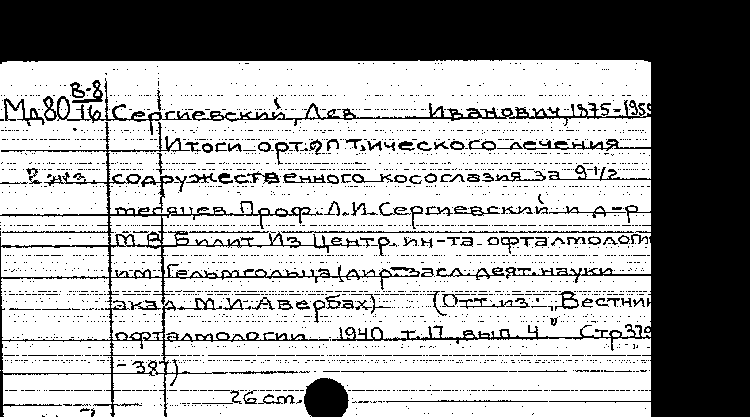 В-8
Мд80 16 Сергиевский, Лев Иванович, 1875-1955
Итоги ортоптического лечения
2 экз. содружественного косоглазия за 9 1/2
месяцев. Проф. Л.И. Сергиевский и д-р
М.В. Билит. Из Центр. ин-та офталмологи
им. Гельмгольца (дир. засл. деят. науки
акад. М.И. Авербах) (Отт. из: „Вестник
офталмологии 1940 т. 17, вып. 4" Стр 379
-387).
26 cm.